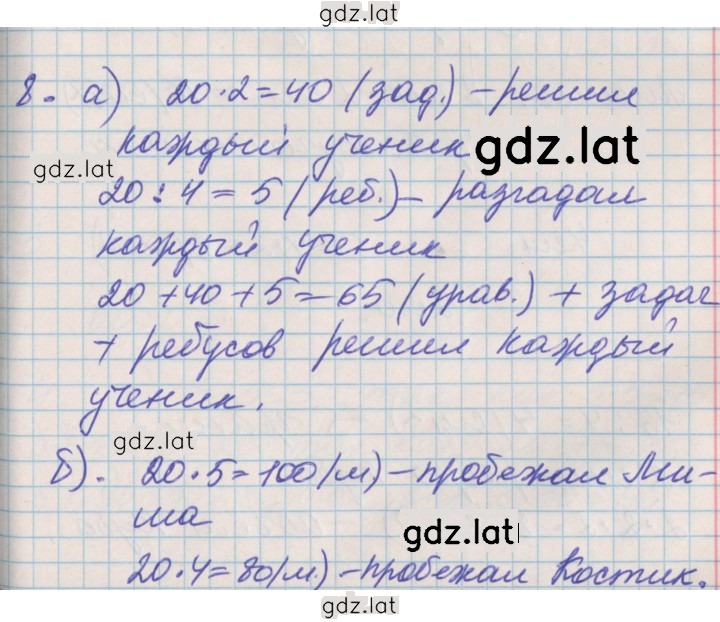 gdz.lat
8. а) 20·2=40 (зад.) – решил
каждый ученик gdz.lat
gdz.lat
20:4=5 (реб.) – разгадал
каждый ученик
20+40+5=65 (урав.) + задач
+ ребусов решил каждый
ученик.
gdz.lat
б). 20·5=100(м) – пробежал Ми-
ша
gdz.lat
20·4=80(м.) – пробежал Костик.
gdz.lat